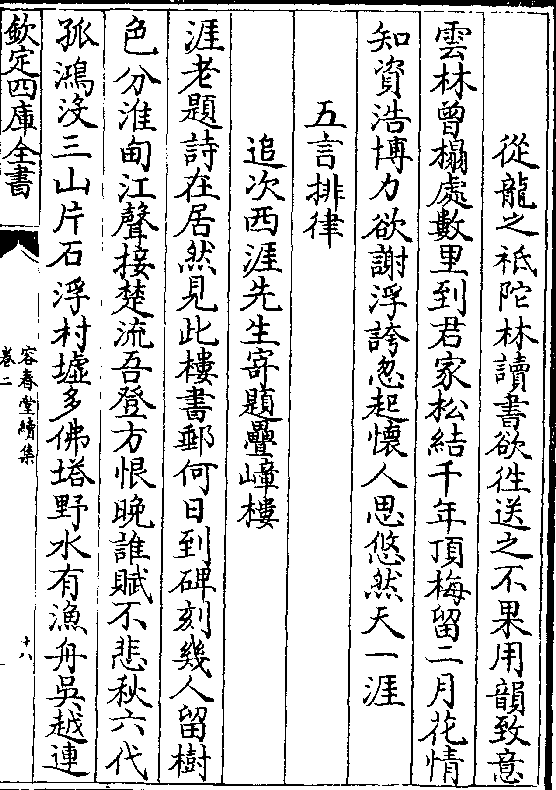 從龍之祗陀林讀書欲徃送之不果用韻致意
雲林曾榻處數里到君家松結千年頂梅留二月花情
知資浩博力欲謝浮誇忽起懷人思悠然天一涯
五言排律
追次西涯先生寄題疊嶂樓
涯老題詩在居然見此樓書郵何日到碑刻幾人留樹
色分淮甸江聲接楚流吾登方恨晚誰賦不悲秋六代
孤鴻沒三山片石浮村墟多佛塔野水有漁舟吳越連
欽定四庫全書
容春堂續集
卷二
十八